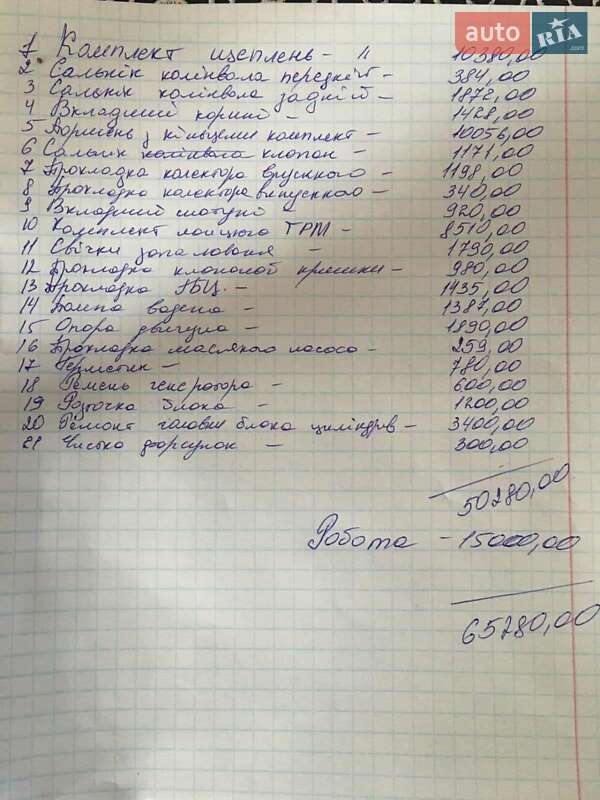 auto RIA.com
1 Комплект щеплень - 10380,00
2 Сальнік колінвала передній - 384,00
3 Сальнік колінвала задній - 1872,00
4 Вкладиші корінні - 1428,00
5 Поршень з кільцеми комплект - 10056,00
6 Сальнік колінвала клапан - 1171,00
7 Прокладка колектора впускного - 1198,00
8 Прокладка колектора випускного - 340,00
9 Вкладиші шатунні - 920,00
10 Комплект ланцюга ГРМ - 8510,00
11 Свічки запалювання - 1790,00
12 Прокладка клапаной кришки - 980,00
13 Прокладка ГБЦ. - 1435,00
14 Помпа водяна - 1387,00
15 Опора двигуна - 1890,00
16 Прокладка масляного насоса - 259,00
17 Герметик - 780,00
18 Ремень генератора - 600,00
19 Расточка блока - 1200,00
20 Ремонт головки блока циліндрів - 3400,00
21 Чистка форсунок - 300,00
50280,00
Робота - 15000,00
65280,00